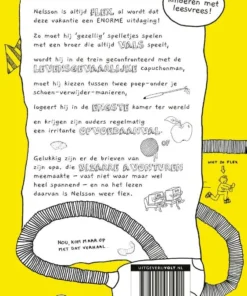 amberen met
leesvrees!
Nelsson is altijd FLEX, al wordt dat
deze vakantie een ENORME uitdaging!
Zo moet hij 'gezellig' spelletjes spelen
met een broer die altijd VALS speelt,
wordt hij in de trein geconfronteerd met de
LEVENSGEVAARLIJKE capuchonman,
moet hij kiezen tussen twee poep-onder je
schoen-verwijder-manieren,
logeert hij in de ENGSTE kamer ter wereld
en krijgen zijn ouders regelmatig
een irritante OPVOEDAANVAL.
Gelukkig zijn er de brieven van
zijn opa, die BIZARRE AVONTUREN
meemaakte – vast niet waar maar wel
heel spannend – en na het lezen
daarvan is Nelsson weer flex.
NOT SO FLEX
NOU, KOM MAAR OP
MET DAT VERHAAL...
UITGEVERIJVOLT.NL